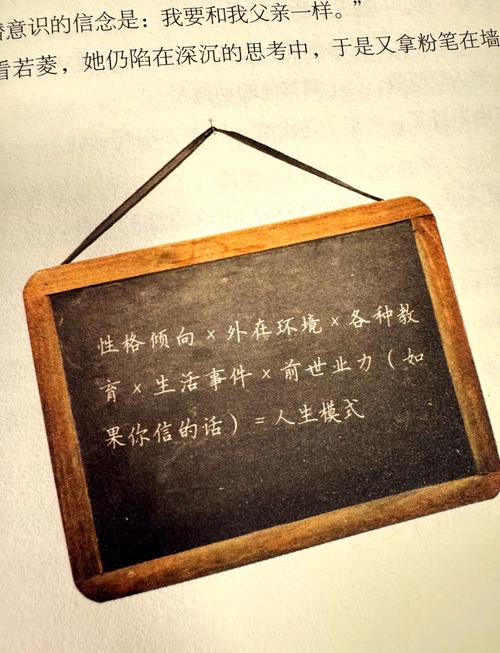 潜意识的信念是：我要和我父亲一样。”
看若菱，她仍陷在深沉的思考中，于是又拿粉笔在墙
性格倾向×外在环境×各种教
育×生活事件×前世业力（如
果你信的话）＝人生模式